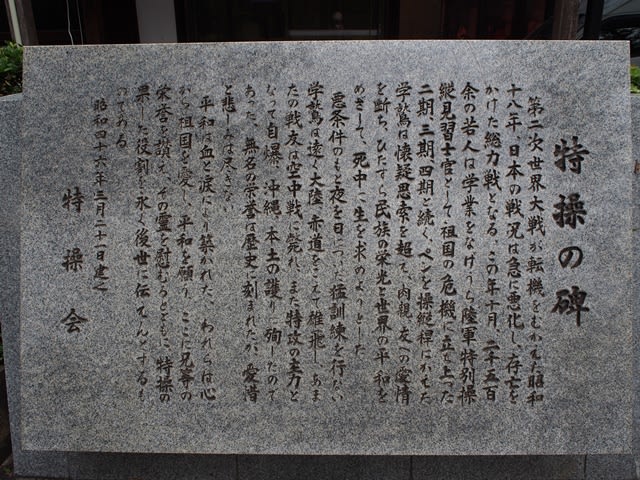 特操の碑
第二次世界大戦が転機をむかえた昭和
十八年、日本の戦況は急に悪化し、存亡を
かけた総力戦となる。この年十月、二千五百
余の若人は学業をなげうち陸軍特別操
縦見習士官として祖国の危機に立上った
二期、三期、四期と続く。ペンを操縦桿にかえた
学鷲は懐疑思索を超て、肉親、友への愛情
を断ち、ひたすら民族の栄光と世界の平和を
めざして、死中に生を求めようとした
悪条件のもと夜を日についだ猛訓練を行ない
学鷲は遠く大陸、赤道をこえて雄飛し、あま
たの戦友は空中戦に斃れ、また特攻の主力と
なって自爆し沖縄、本土の護りに殉じたので
あった。無名の栄誉は歴史に刻まれたが、愛惜
と悲しみは尽きない
平和は血と涙により築かれた。われらは心
から祖国を愛し、平和を願う。ここに兄等の
栄誉を讃え、その霊を慰むるとともに、特操の
果した役割を永く後世に伝えんとするも
のである
昭和四十六年三月二十一日建之
特操会